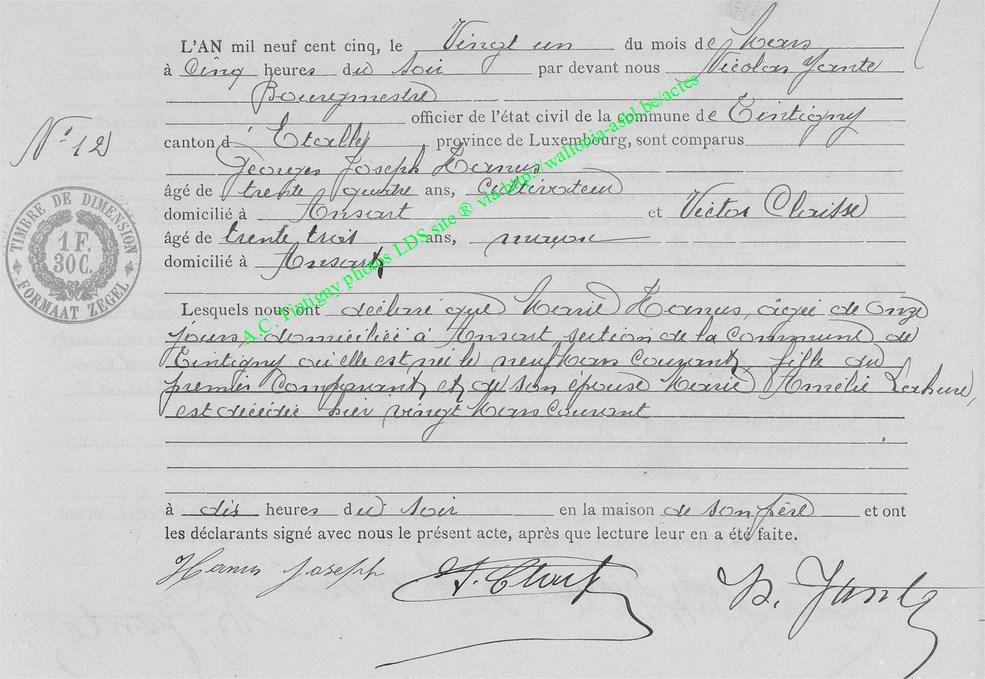 L'AN mil neuf cent cinq, le Vingt un du mois de Mars
à Cinq heures du soir par devant nous Nicolas Yante
Bourgmestre
officier de l'état civil de la commune de Tintigny
canton d'Etalle, province de Luxembourg, sont comparus
Georges Joseph Hanus
âgé de trente quatre ans, Cultivateur
domicilié à Ansart et Victor Claisse
âgé de trente trois ans, maçon
domicilié à Ansart
Lesquels nous ont déclaré que Marie Hanus, âgée de onze
jours, domiciliée à Ansart section de la Commune de
Tintigny où elle est née le neuf Mars Courant, fille du
premier Comparant et de son épouse Marie Amélie
est décédée hier vingt Mars Courant
à dix heures du soir en la maison de son père et ont
les déclarants signé avec nous le présent acte, après que lecture leur en a été faite.
Hanus Joseph
N. Yante
N° 12
TIMBRE DE DIMENSION
1 F.
30 C.
FORMAAT ZEGEL
A.C. Tintigny photos LDS site ® via http://wallonia-asbl.be/actes